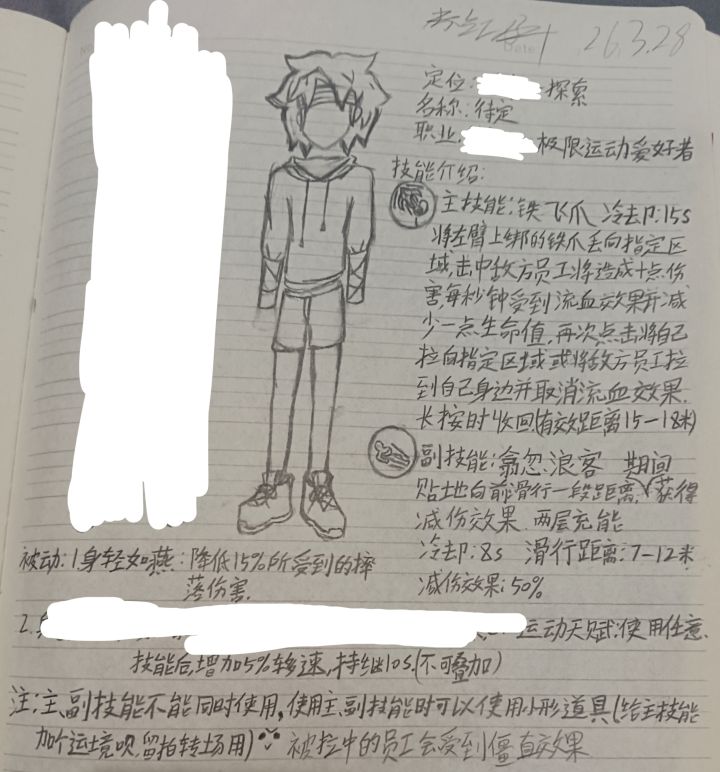 26.3.28
Date
定位: 探索
名称: 待定
职业: 极限运动爱好者
技能介绍:
主技能:铁飞爪 冷却:15s
将左臂上绑的铁爪丢向指定区
域,击中敌方员工将造成十点伤
害,每秒钟受到流血效果并减
少一点生命值,再次点击将自己
拉向指定区域或将敌方员工拉
到自己身边并取消流血效果.
长按时收回(有效距离15-18米)
副技能:翕忽浪客 期间
贴地向前滑行一段距离,获得
减伤效果.两层充能
冷却:8s 滑行距离:7-12米
减伤效果:50%
被动:1.身轻如燕:降低15%所受到的摔
落伤害.
2. 运动天赋:使用任意
技能后,增加5%移速,持续10s.(不可叠加)
注:主、副技能不能同时使用,使用主、副技能时可以使用小形道具(给主技能
加个运境呗,留拍转场用) 被拉中的员工会受到僵直效果